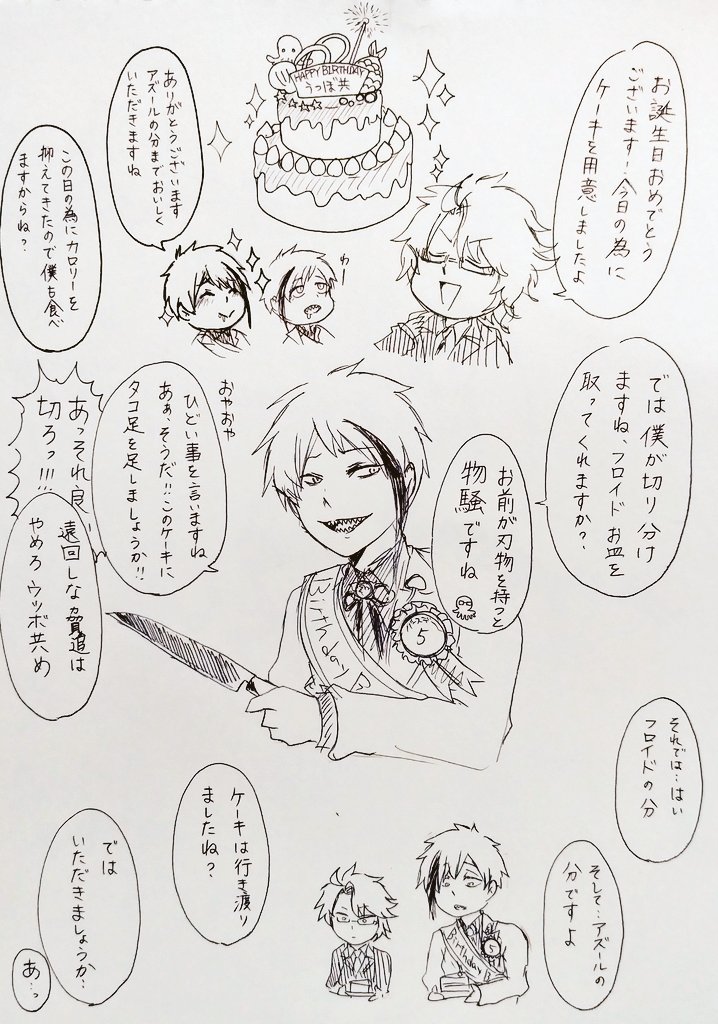 お誕生日おめでとう
ございます！今日の為に
ケーキを用意しましたよ
HAPPY BIRTHDAY
うつぼ共
ありがとうございます
アズールの分までおいしく
いただきますね
この日の為にカロリーを
抑えてきたので僕も食べ
ますからね？
わー
では僕が切り分け
ますね、フロイド お皿を
取ってくれますか？
お前が刃物を持つと
物騒ですね
おやおや
ひどい事を言いますね
あぁ、そうだ!!このケーキに
タコ足を足しましょうか!!
あっそれ良い
切ろっ!!!
遠回しな
は
やめろ ウツボ共め
Birthday B
5
それでは…はい
フロイドの分
そして…アズールの
分ですよ
Birthday B
5
ケーキは行き渡り
ましたね？
では
いただきましょうか…
あ…っ